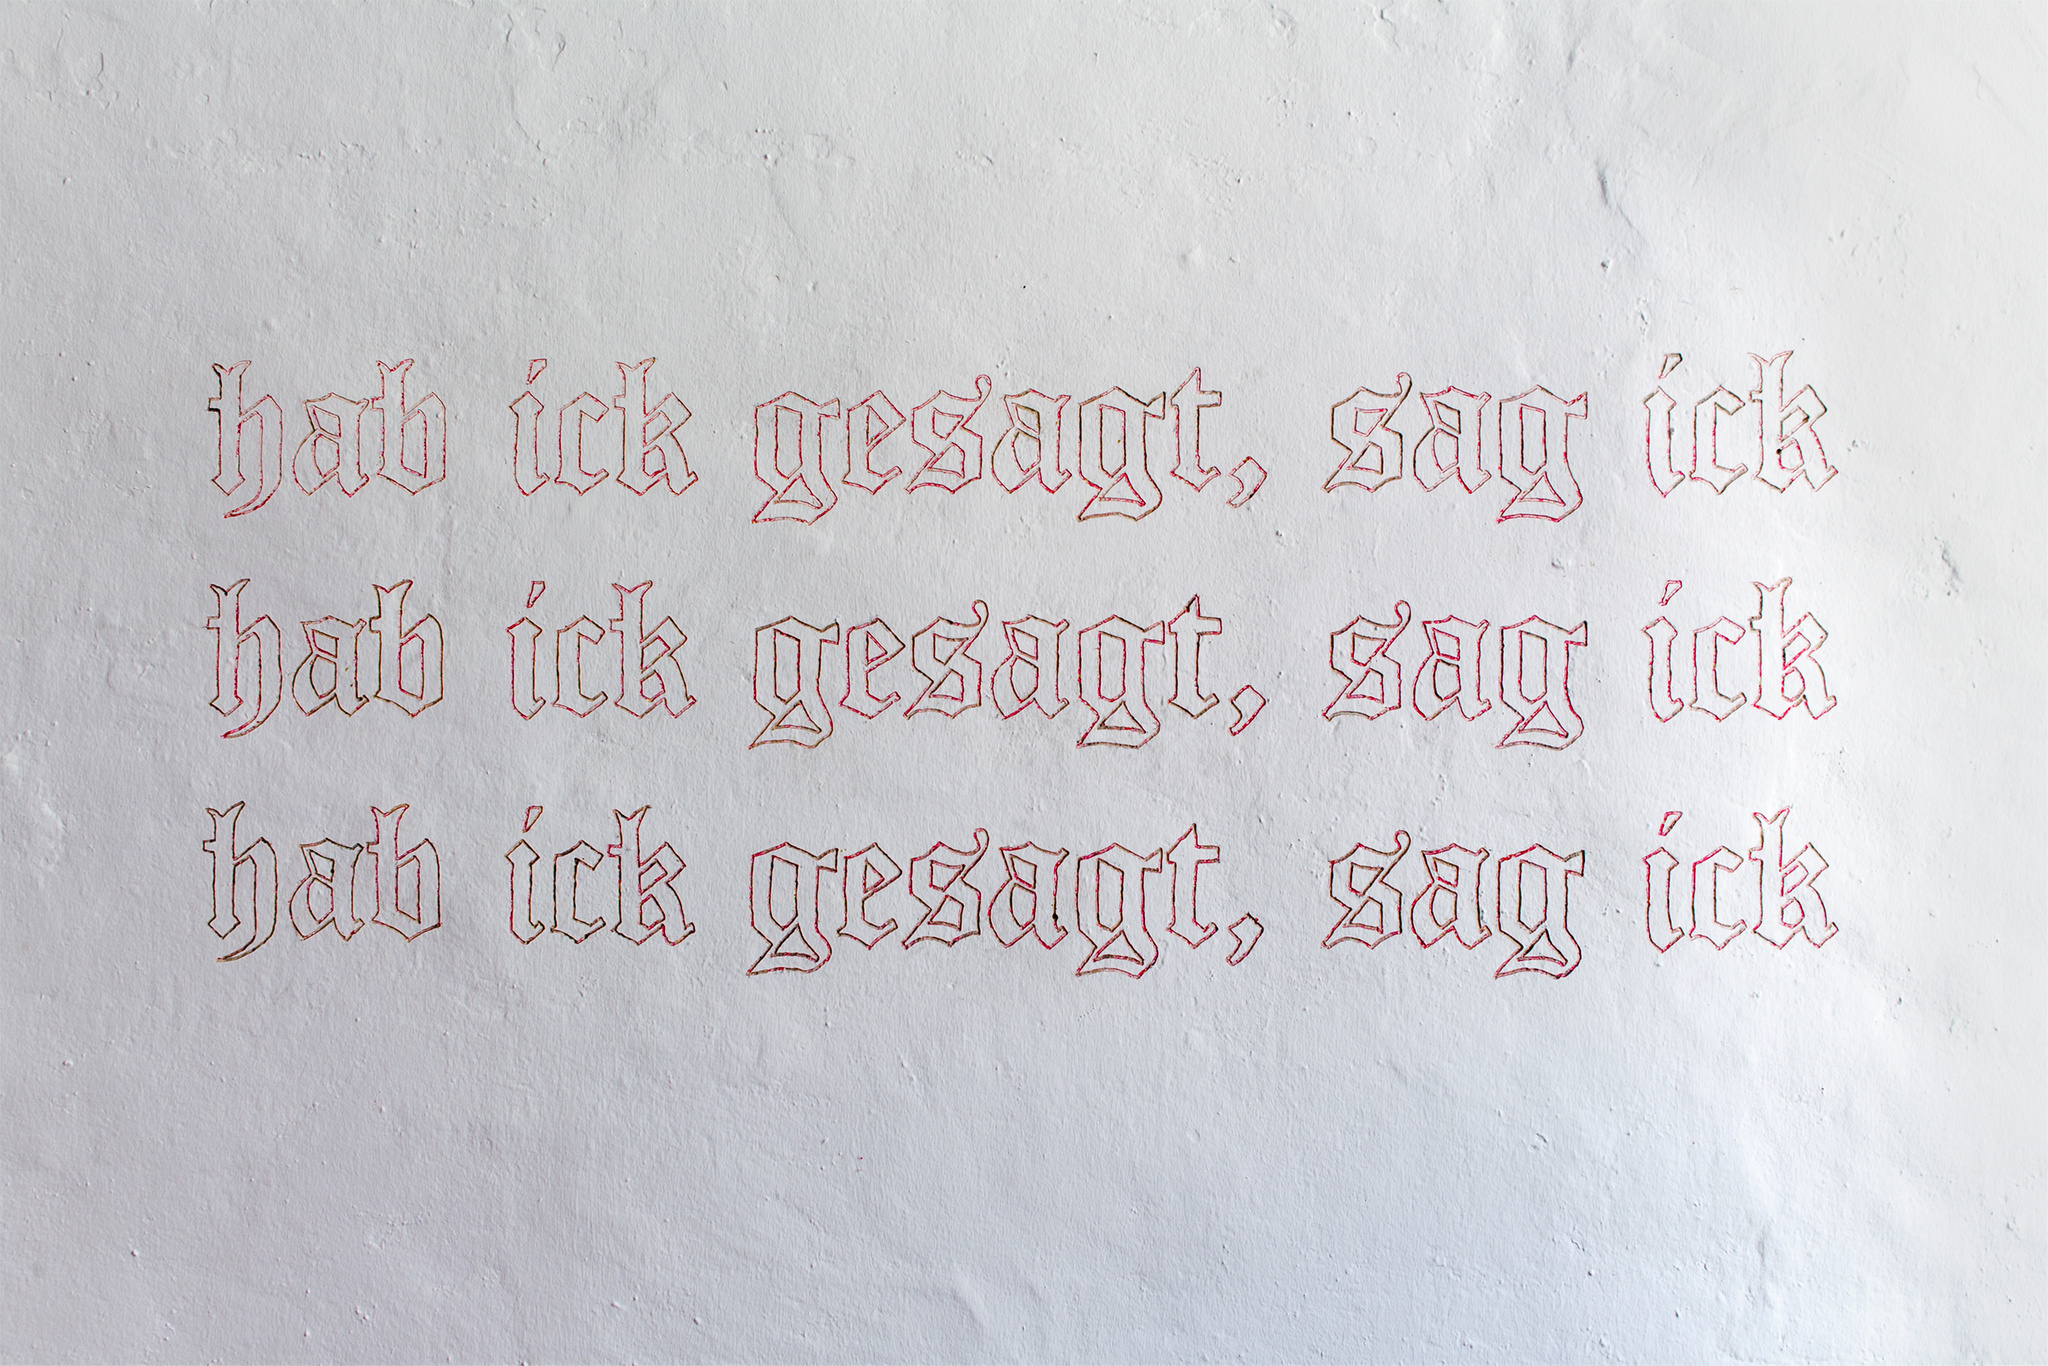 hab ick gesagt, sag ick
hab ick gesagt, sag ick
hab ick gesagt, sag ick